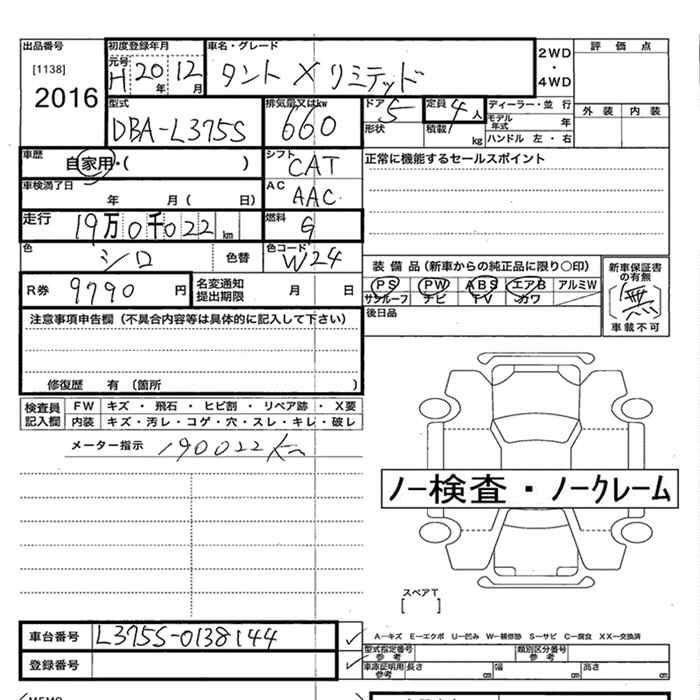 出品番号 初度登録年月 車名・グレード 2WD・4WD 評価点
[1138] 元号 H 20年 12月 タント X リミテッド
2016 型式 排気量又はkw ドア 5 定員 4人 ディーラー・並行 外装 内装
DBA-L375S 660 形状 積載 kg モデル年式 年
ハンドル 左・右
車歴 自家用・( ) シフト CAT 正常に機能するセールスポイント
車検満了日 年 月( 日) AC AAC
走行 19万0千022km 燃料 G
色 シロ 色替 色コード W24
装備品(新車からの純正品に限り○印) 新車保証書の有無
R券 9790円 名変通知提出期限 月 日 PS PW ABS エアB アルミW 無
サンルーフ ナビ TV カワ 車載不可
注意事項申告欄(不具合内容等は具体的に記入して下さい) 後日品
修復歴 有〔箇所 〕
検査員記入欄 FW キズ・飛石・ヒビ割・リペア跡・X要
内装 キズ・汚レ・コゲ・穴・スレ・キレ・破レ
メーター指示 190022km
ノー検査・ノークレーム
スペアT
[ ]
車台番号 L375S-0138144 A-キズ E-エクボ U-凹み W-補修跡 S-サビ C-腐食 XX-交換済
登録番号 型式指定番号 参考 類別区分番号 参考
車庫証明用 参考 長さ cm 幅 cm 高さ cm
MEMO